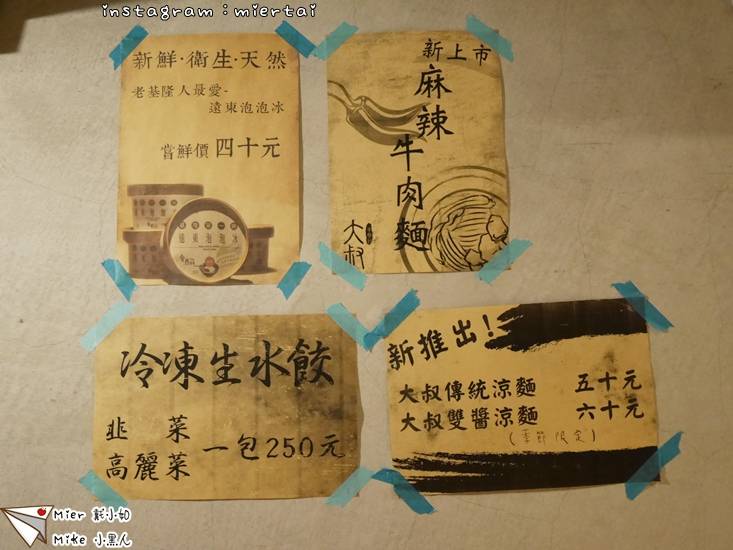 instagram：miertai
新鮮·衛生·天然
老基隆人最愛-
遠東泡泡冰
嘗鮮價 四十元
遠東泡泡冰
新上市
麻辣牛肉麵
大叔
冷凍生水餃
韭 菜
高麗菜
一包250元
新推出!
大叔傳統涼麵 五十元
大叔雙醬涼麵 六十元
(季節限定)
Mier 彭小如
Mike 小黑人